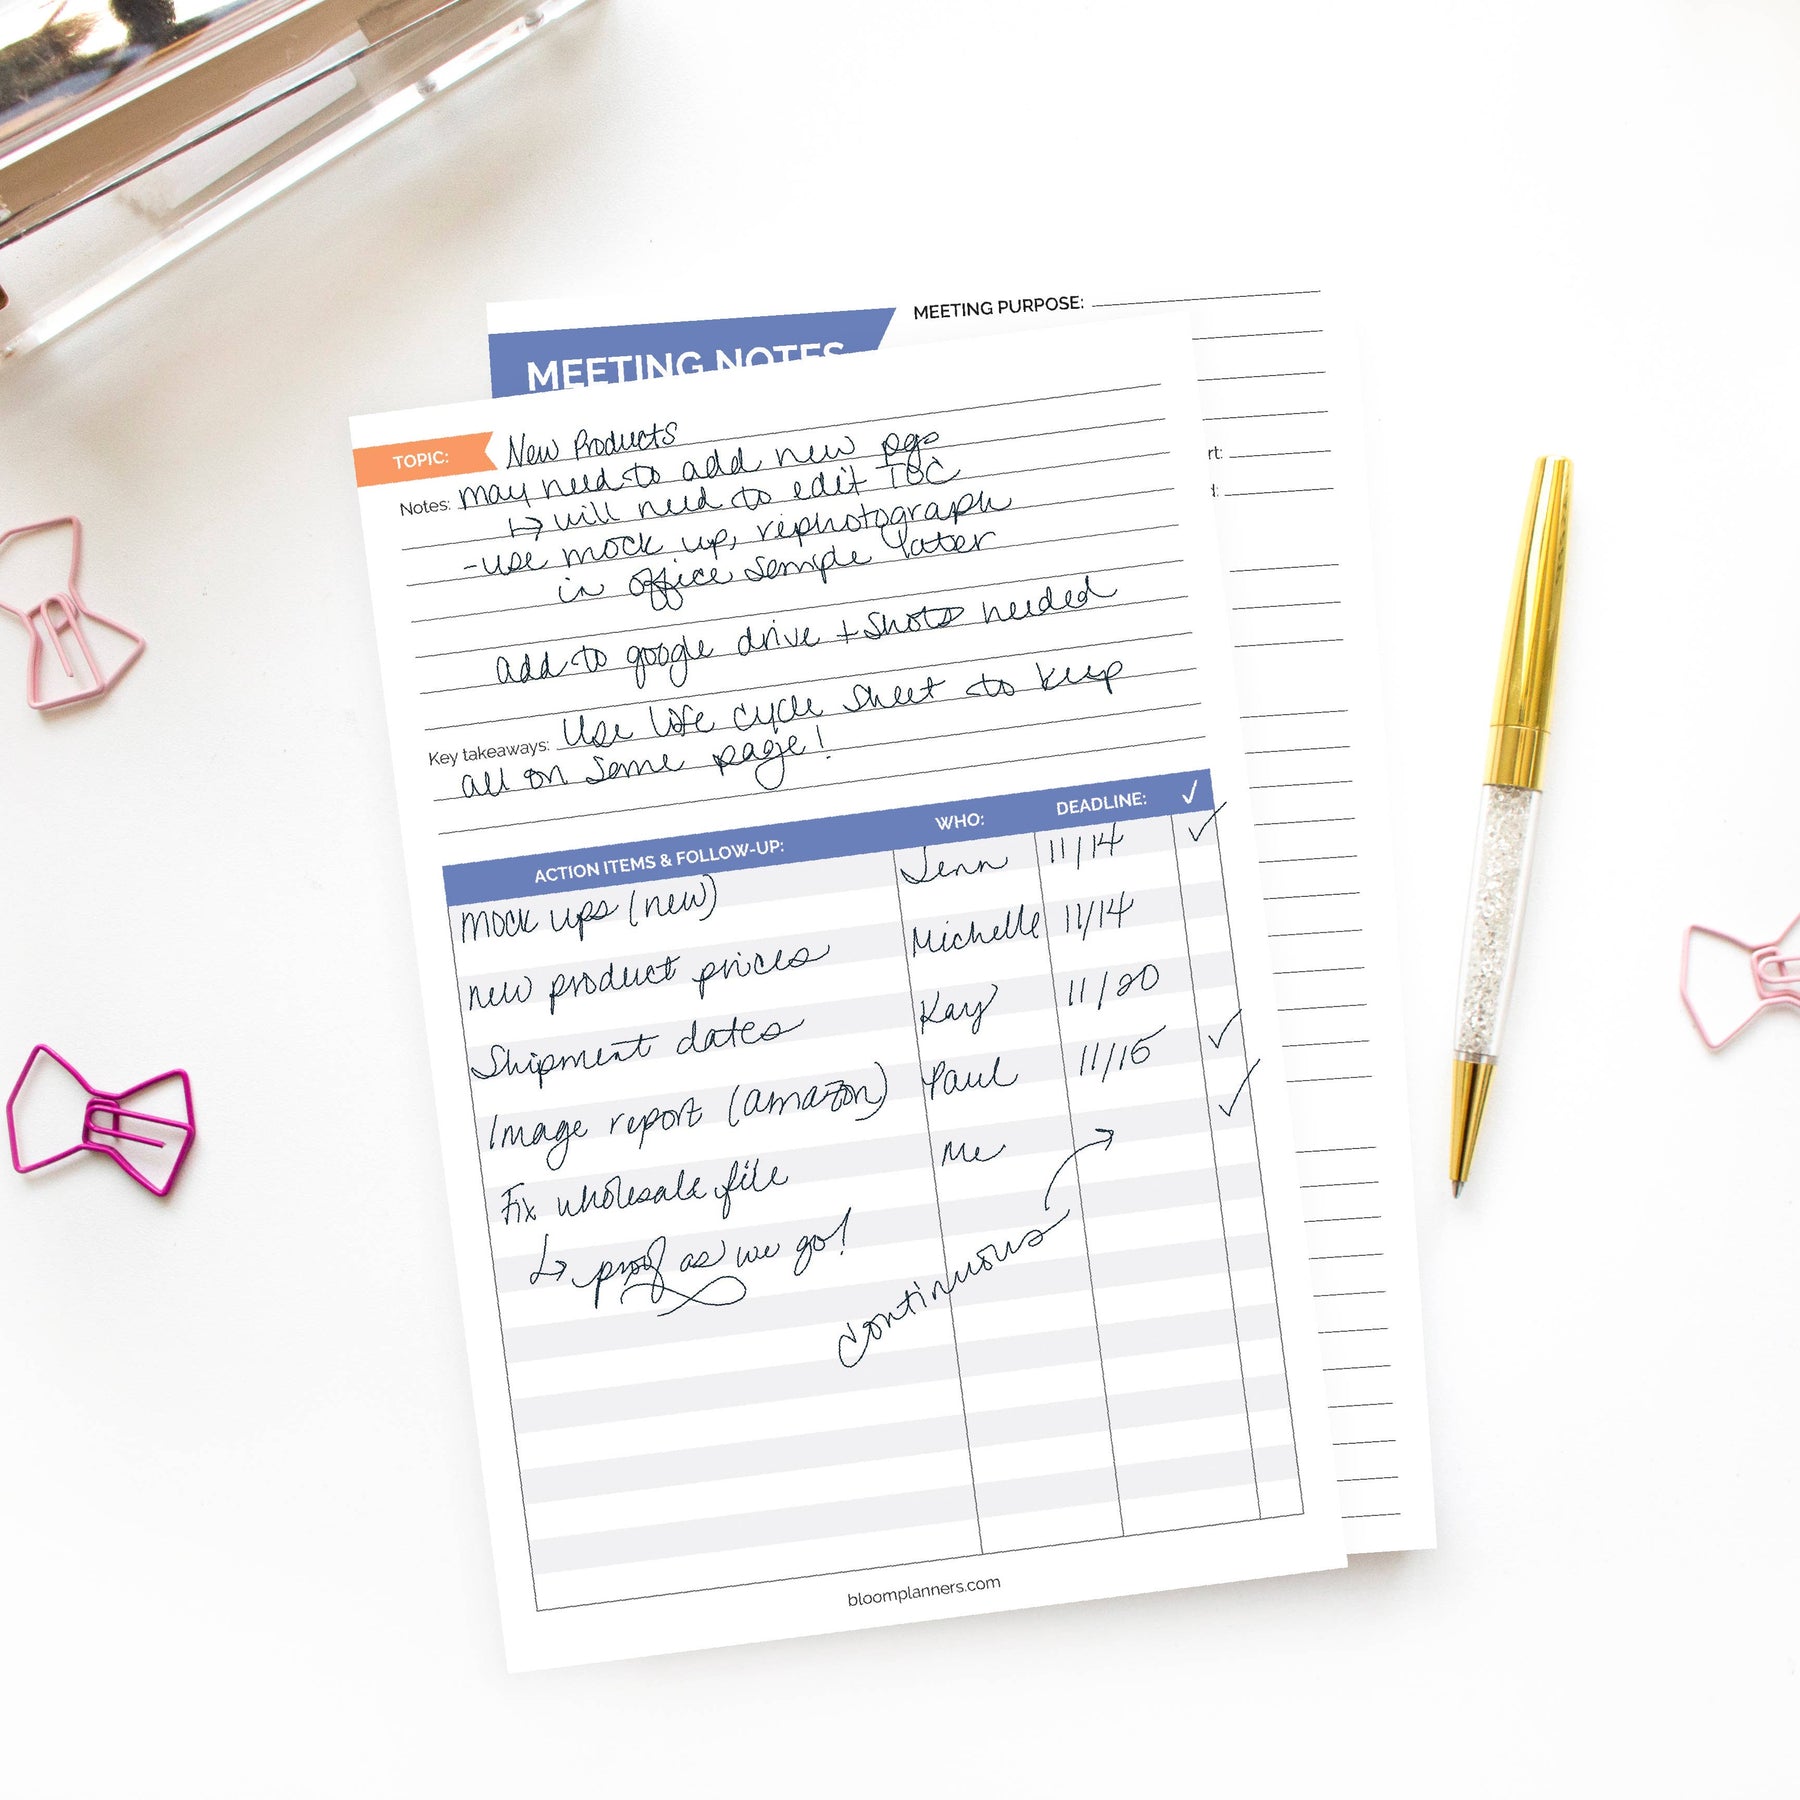 MEETING PURPOSE:
MEETING NOTES
TOPIC: New Products
Notes: may need to add new pgs
↳ will need to edit TOC
-use mock up, rephotograph
in office sample later
add to google drive + shots needed
Key takeaways: Use life cycle sheet to keep
all on same page!
ACTION ITEMS & FOLLOW-UP: WHO: DEADLINE: ✓
mock ups (new) Jenn 11/14 ✓
new product prices Michelle 11/14
Shipment dates Kay 11/20
Image report (amazon) Paul 11/15 ✓
Fix wholesale file Me ✓
↳ proof as we go!
continuous
bloomplanners.com
rt: